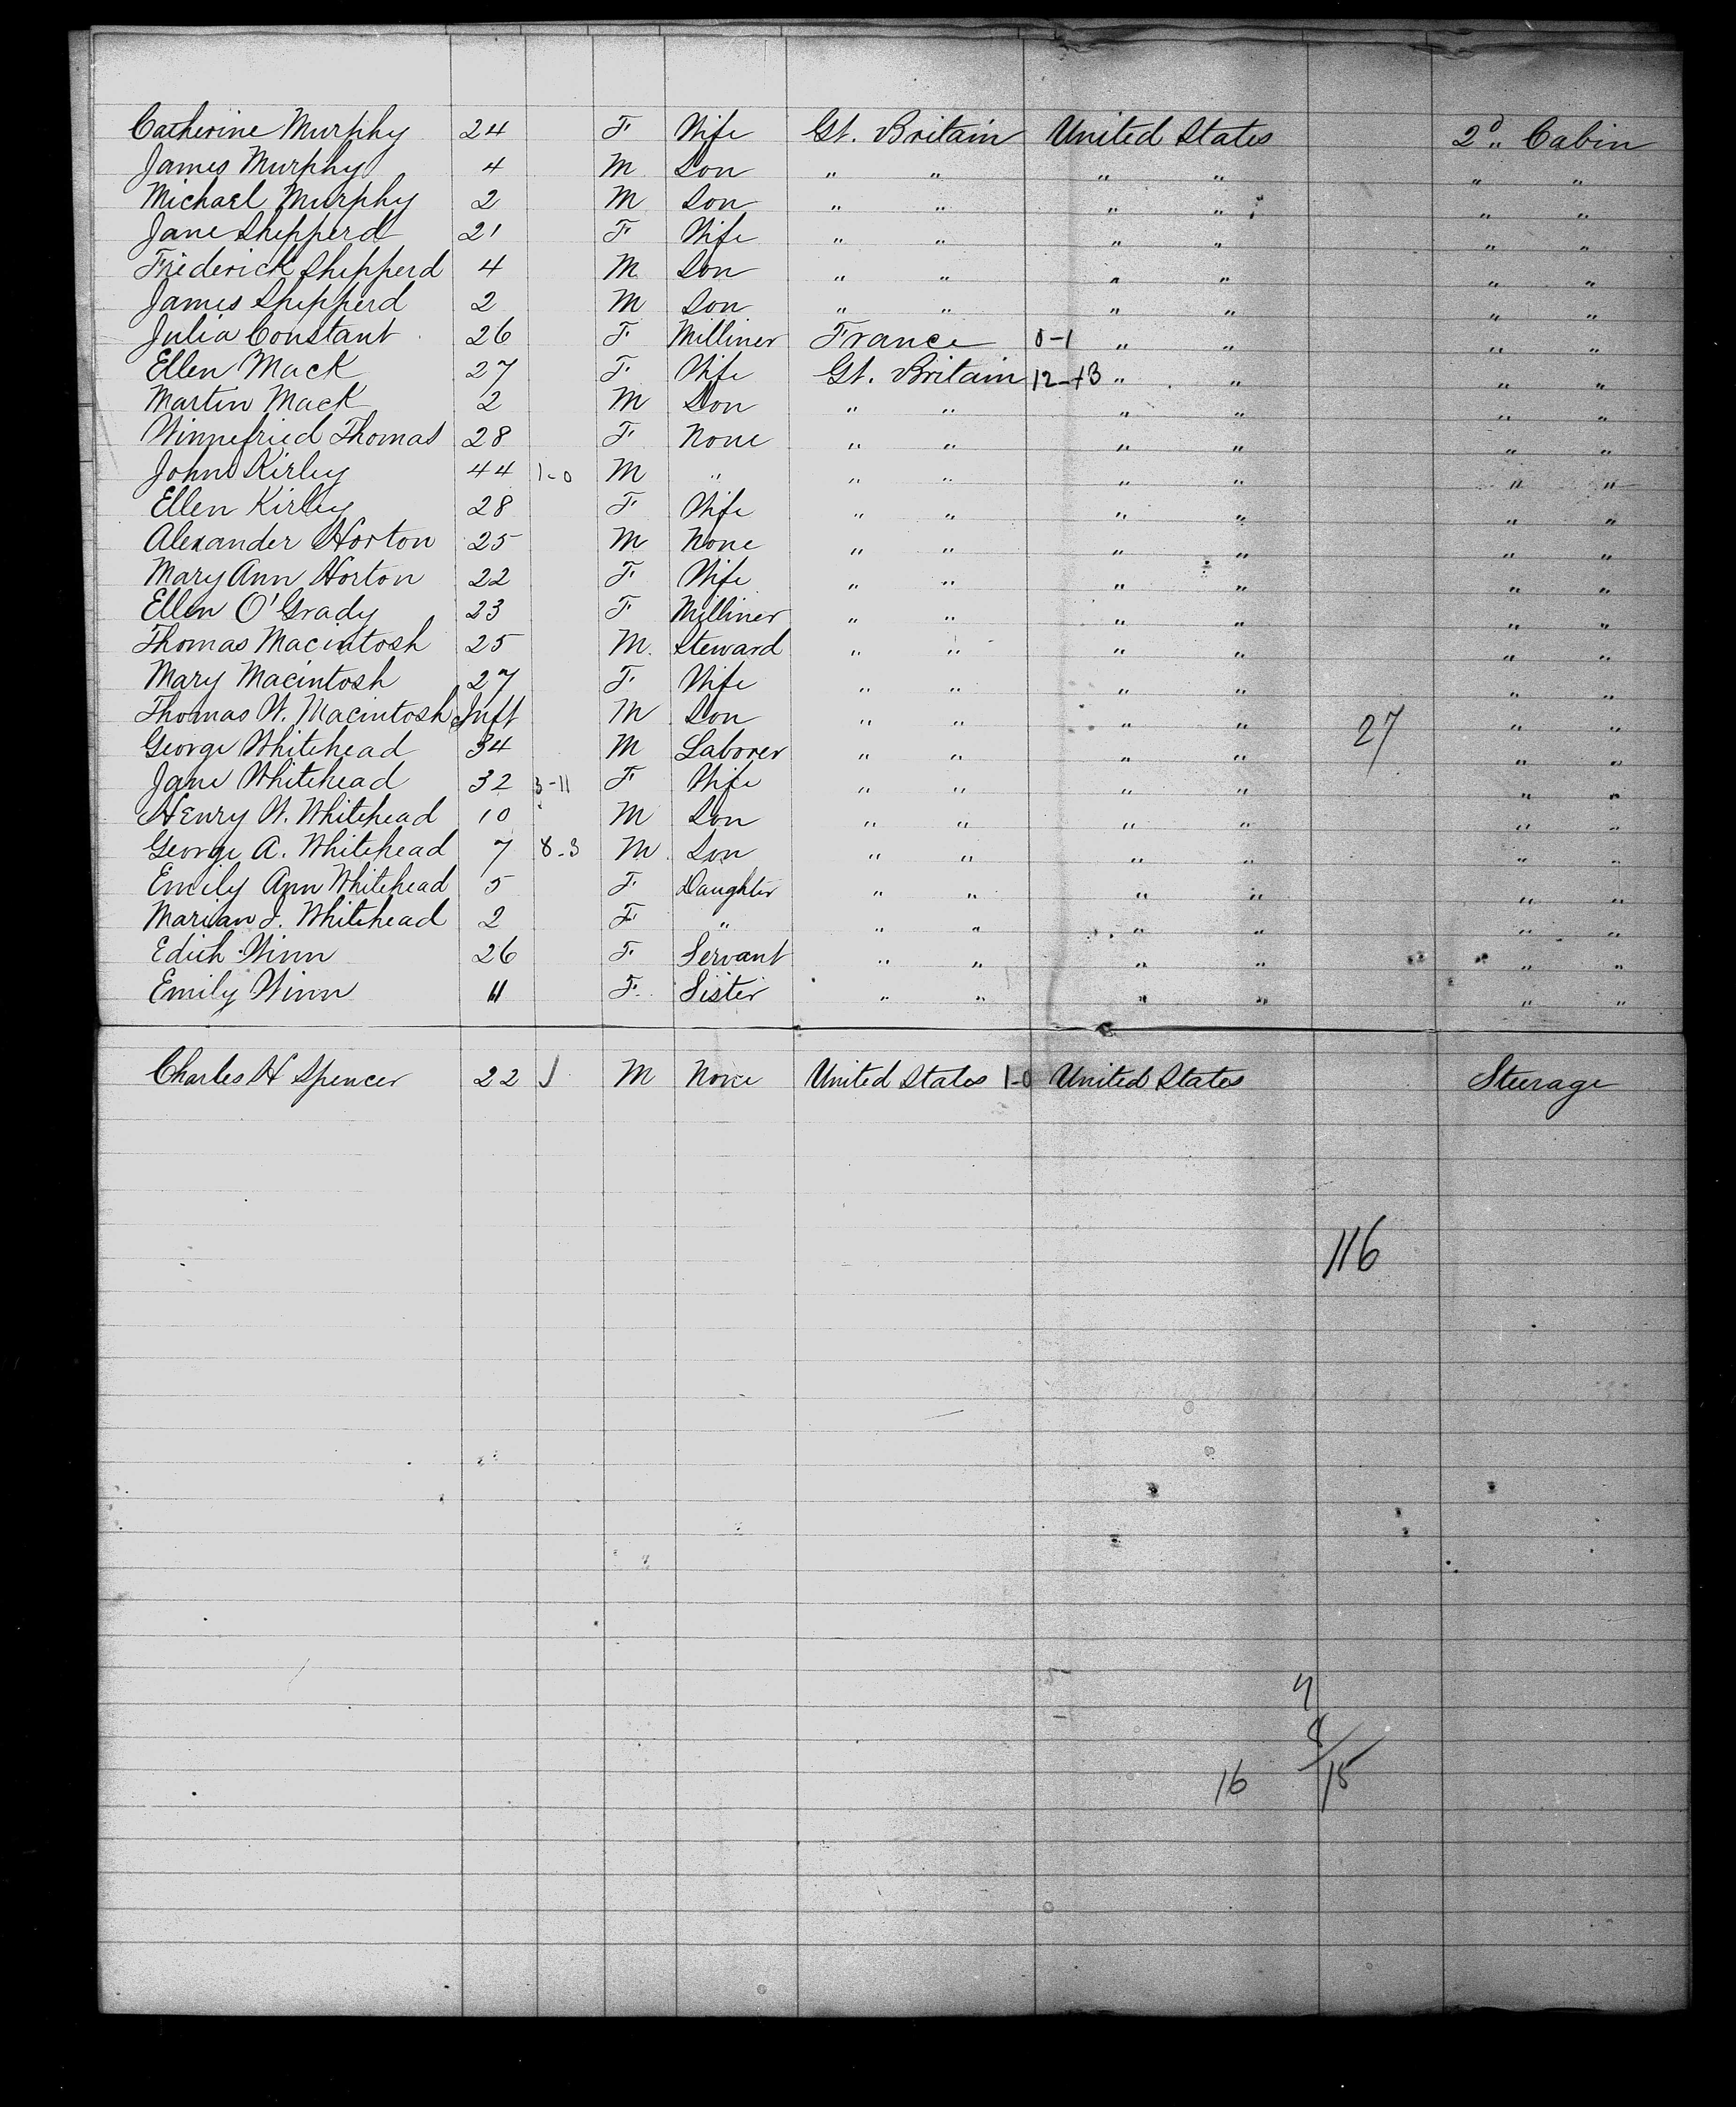 Catherine Murphy 24 F Wife Gt. Britain United States 2d Cabin
James Murphy 4 M Son " " " " " "
Michael Murphy 2 M Son " " " " " "
Jane Shepperd 21 F Wife " " " " " "
Frederick Shepperd 4 M Son " " " " " "
James Shepperd 2 M Son " " " " " "
Julia Constant 26 F Milliner France 0-1 " " " "
Ellen Mack 27 F Wife Gt. Britain 12-13 " " " "
Martin Mack 2 M Son " " " " " "
Winnefried Thomas 28 F None " " " " " "
John Kirley 44 1-0 M " " " " " " "
Ellen Kirley 28 F Wife " " " " " "
Alexander Horton 25 M None " " " " " "
Mary Ann Horton 22 F Wife " " " " " "
Ellen O'Grady 23 F Milliner " " " " " "
Thomas Macintosh 25 M. Steward " " " " " "
Mary Macintosh 27 F Wife " " " " " "
Thomas W. Macintosh Inft M Son " " " " 27 " "
George Whitehead 34 M Laborer " " " " " "
Jane Whitehead 32 3-11 F Wife " " " " " "
Henry W. Whitehead 10 M Son " " " " " "
George A. Whitehead 7 8-3 M Son " " " " " "
Emily Ann Whitehead 5 F Daughter " " " " " "
Marian J. Whitehead 2 F " " " " " " "
Edith Winn 26 F Servant " " " " " "
Emily Winn 11 F Sister " " " " " "
Charles H Spencer 22 M None United States 1-0 United States Steerage
116
7
8
16 15